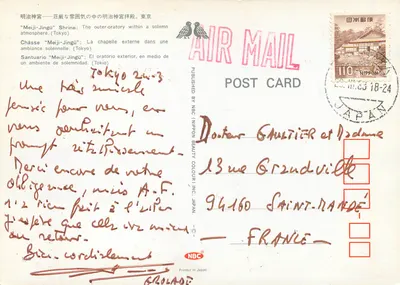 明治神宮——荘厳な雰囲気の中の明治神宮拝殿。東京
"Meiji-Jingū" Shrine: The outer-oratory within a solemn
atmosphere. (Tokyo)
Châsse "Meiji-Jingū": La chapelle externe dans une
ambiance solennelle. (Tokyo)
Santuario "Meiji-Jingū": El oratorio exterior, en medio de
un ambiente de solemnidad. (Tokyo)
Tokyo
Une très amicale
pensée pour vous, en
vous souhaitant un
prompt rétablissement.
Merci encore de votre
obligeance, mais A.F.
n'a rien fait à l'
J'espère que cela ira mieux
au retour.
Bien cordialement
AIR MAIL
POST CARD
PUBLISHED BY NBC (NIPPON BEAUTY COLOUR) INC. JAPAN
日本郵便
110
NIPPON
18-24
JAPAN
Docteur GAULTIER et Madame
13 rue Grandville
94160 SAINT-MANDÉ
- FRANCE -
NBC
Printed in Japan